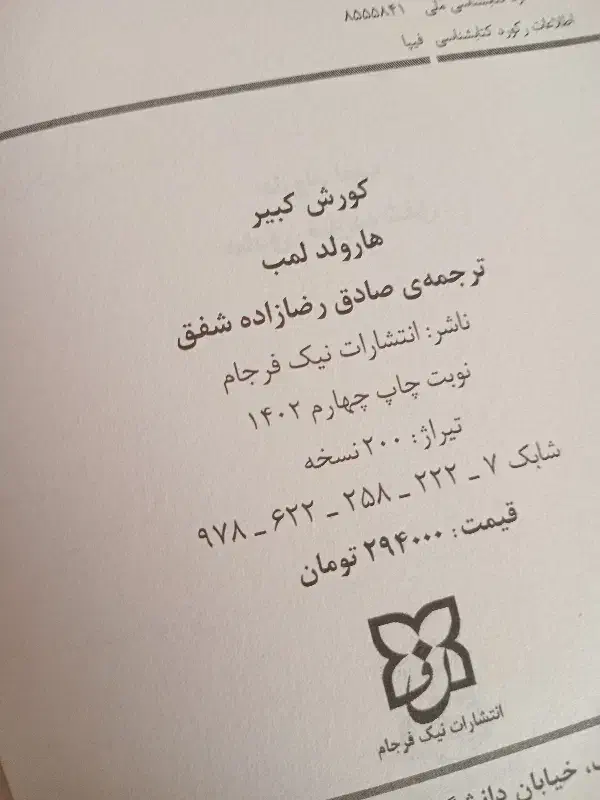 کتابشناسی ملی ۸۵۵۵۸۴۱
اطلاعات رکورد کتابشناسی فیپا
کورش کبیر
هارولد لمب
ترجمه‌ی صادق رضازاده شفق
ناشر: انتشارات نیک فرجام
نوبت چاپ چهارم ۱۴۰۲
تیراژ: ۲۰۰ نسخه
شابک ۷ ـ ۲۲۲ ـ ۲۵۸ ـ ۶۲۲ ـ ۹۷۸
قیمت: ۲۹۴۰۰۰ تومان
انتشارات نیک فرجام
خیابان